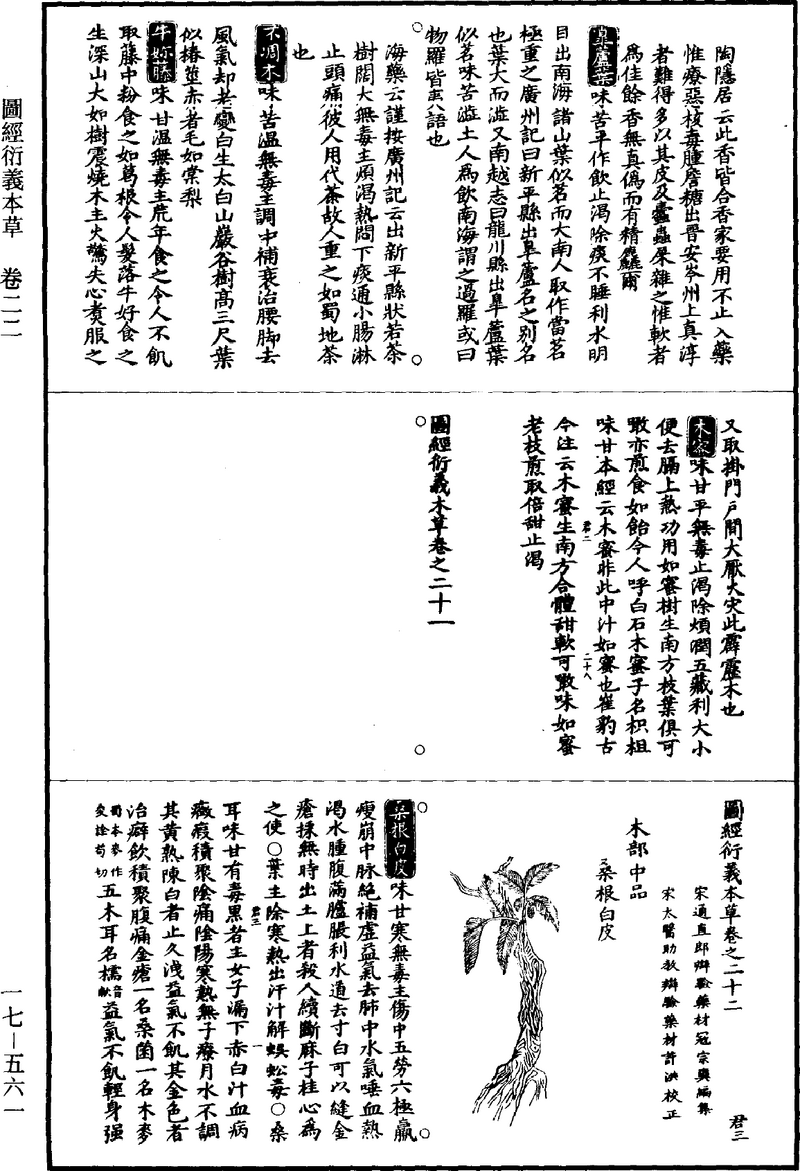 陶隱居云此香皆合香家要用不止入藥
惟療惡核毒腫詹糖出晉安岑州上真淳
者難得多以其皮及蠹蟲屎雜之惟軟者
爲佳餘香無真僞而有精麤爾
皐蘆葉味苦平作飲止渴除痰不睡利水明
目出南海諸山葉似茗而大南人取作當茗
極重之廣州記曰新平縣出皐蘆名之别名
也葉大而澁又南越志曰龍川縣出皐蘆葉
似茗味苦澁土人爲飲南海謂之過羅或曰
物羅皆夷語也
海藥云謹按廣州記云出新平縣狀若茶
樹闊大無毒主煩渴熱悶下痰通小腸淋
止頭痛彼人用代茶故人重之如蜀地茶
也
不凋木味苦温無毒主調中補衰治腰脚去
風氣却老變白生太白山巖谷樹高三尺葉
似椿莖赤若毛如棠梨
牛妳藤味甘温無毒主荒年食之令人不飢
取藤中粉食之如葛根令人髮落牛好食之
生深山大如樹震燒木主火驚失心煑服之
又取掛門戶間大厭火灾此霹靂木也
木蜜味甘平無毒止渴除煩潤五藏利大小
便去膈上熱功用如蜜樹生南方枝葉俱可
噉亦煎食如飴今人呼白石木蜜子名枳椇
味甘本經云木蜜非此中汁如蜜也崔豹古
君二
二十八
今注云木蜜生南方合體甜軟可噉味如蜜
老枝煎取倍甜止渴
圖經衍義本草卷之二十一
圖經衍義本草卷之二十二
君三
宋通直郎辯驗藥材寇宗奭編集
宋太醫助教辯驗藥材許洪校正
木部中品
桑根白皮
桑根白皮味甘寒無毒主傷中五勞六極羸
瘦崩中脉絶補虛益氣去肺中水氣唾血熱
渴水腫腹滿臚脹利水道去寸白可以縫金
瘡採無時出土上者殺人續斷麻子桂心爲
之使○葉主除寒熱出汗汁解蜈蚣毒○桑
君三
一
耳味甘有毒黑者主女子漏下赤白汁血病
癥瘕積聚陰痛陰陽寒熱無子療月水不調
其黄熟陳白者止久洩益氣不飢其金色者
治癖飲積聚腹痛金瘡一名桑菌一名木麥
蜀本麥作
五木耳名檽音軟益氣不飢輕身强
圖經衍義本草 卷二二
一七—五六一